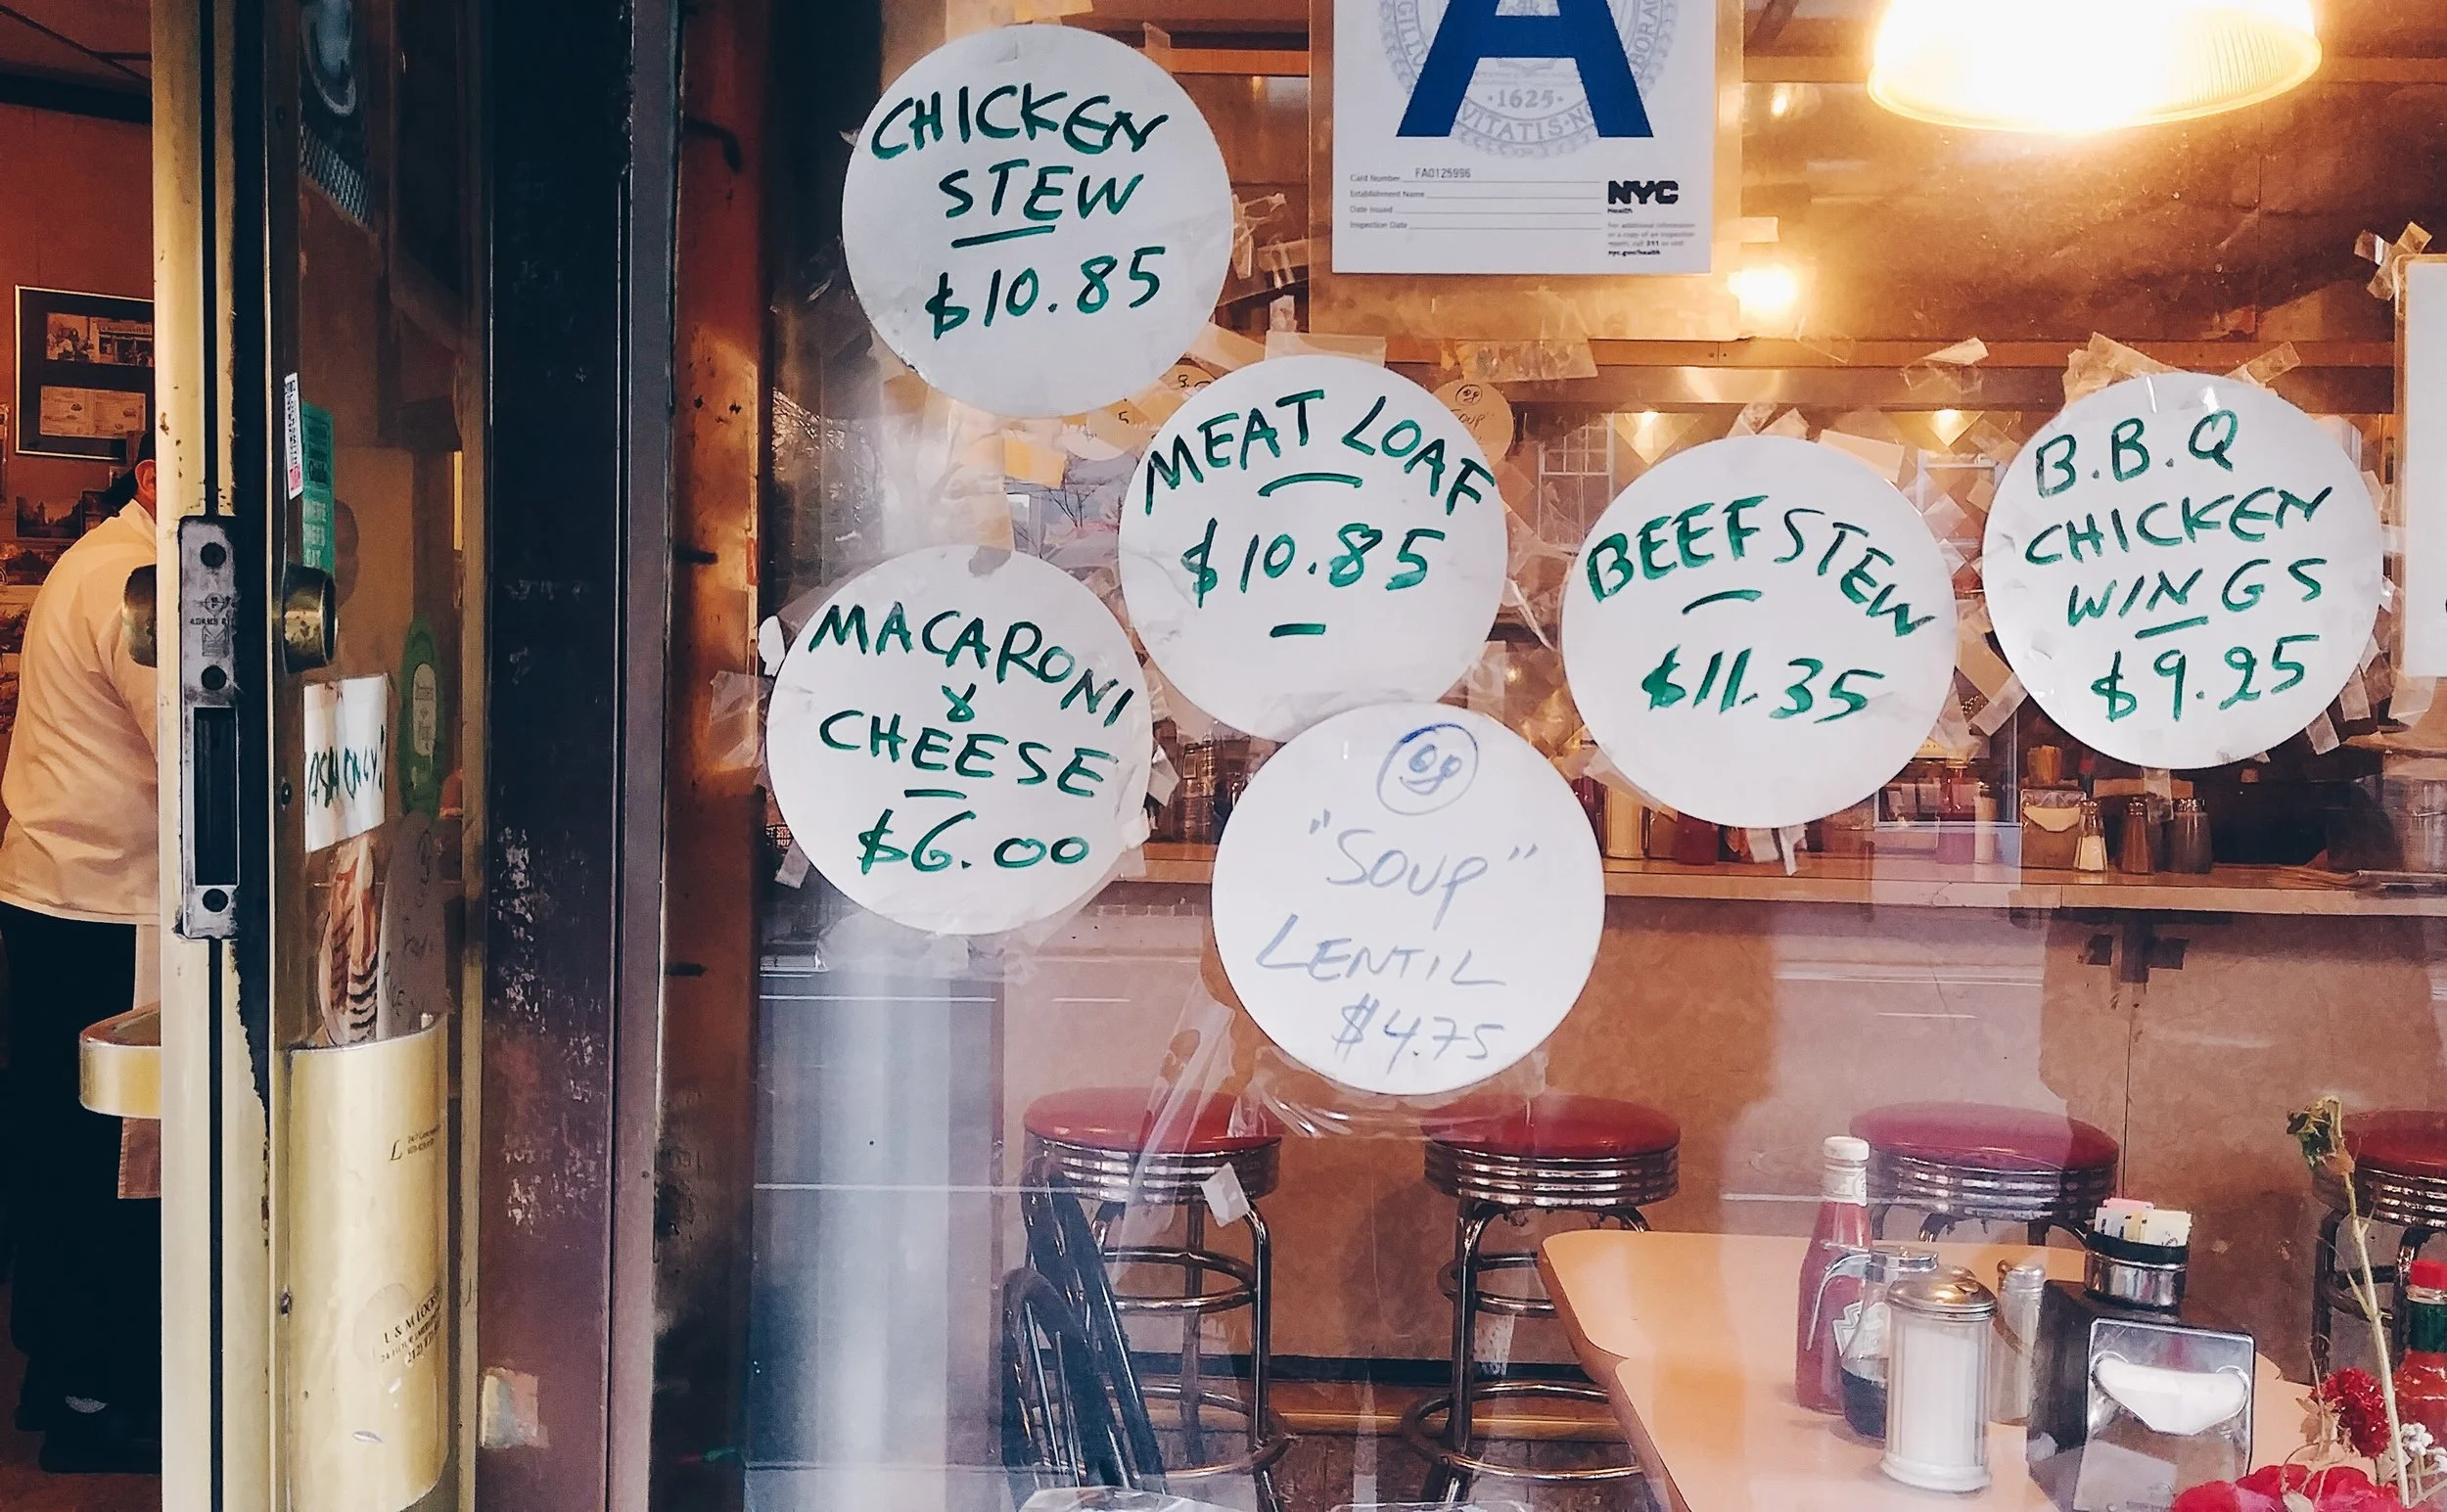 CHICKEN
STEW
$10.85
A
·1625·
VITATIS·N
Card Number FA0125996
Establishment Name
Date Issued
Inspection Date
NYC
Health
nyc.gov/health
MEAT LOAF
$10.85
B.B.Q
CHICKEN
WINGS
$9.25
BEEF STEW
$11.35
MACARONI
&
CHEESE
$6.00
"SOUP"
LENTIL
$4.75
SOUP
ASH ONLY!
L & M LOCKS